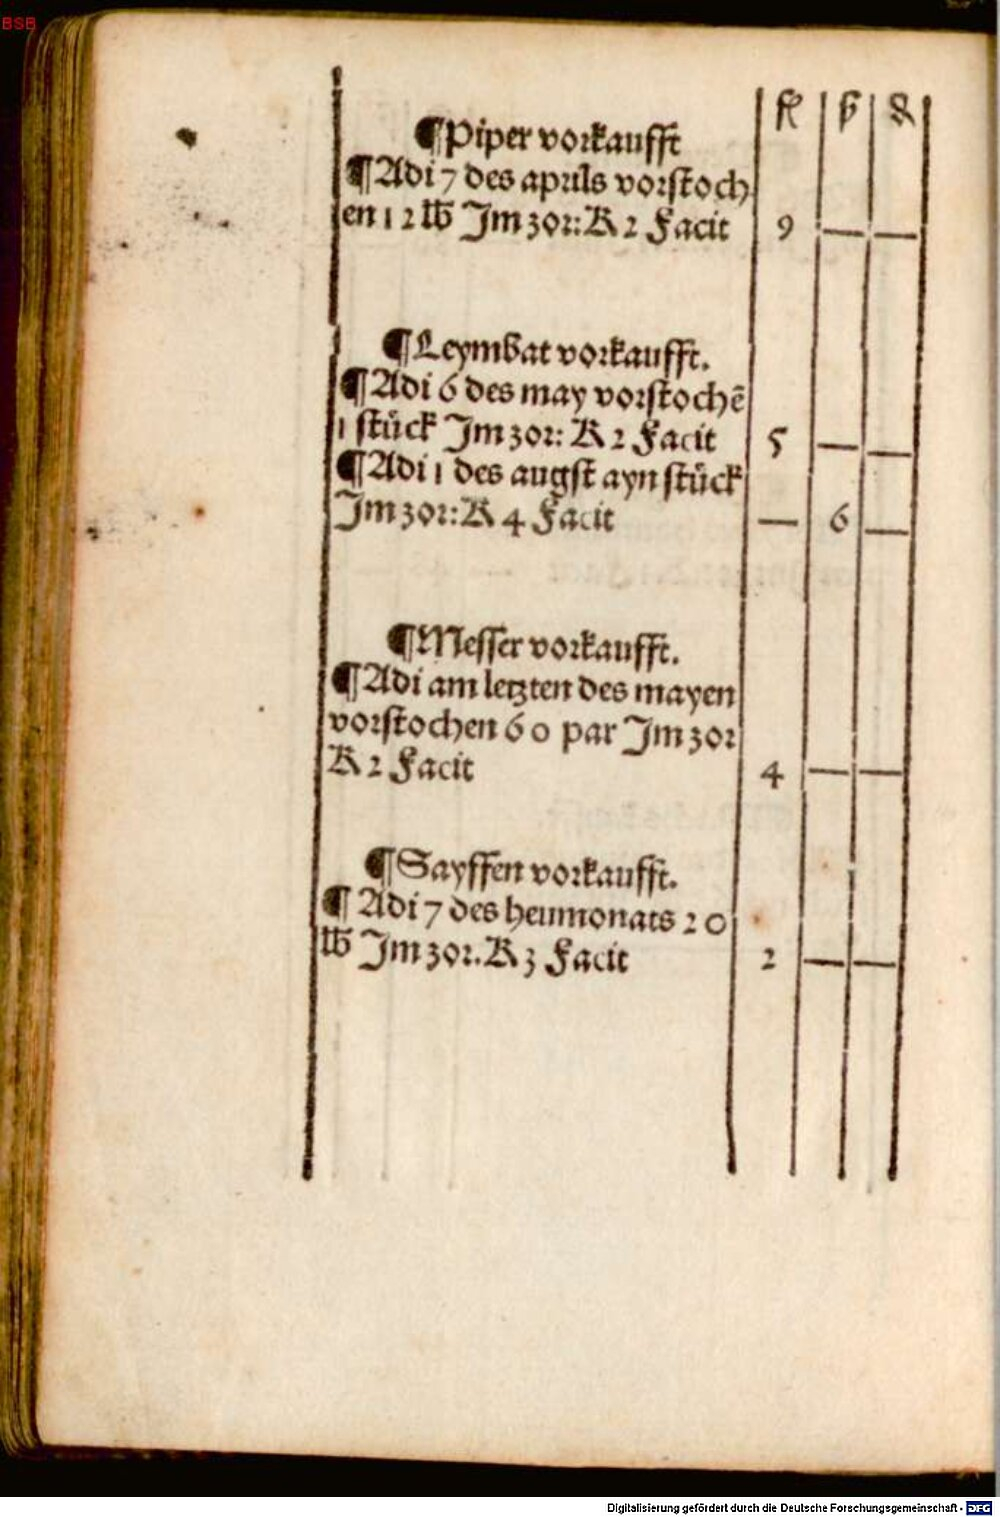 BSB
fl ß ₰
¶Piper vorkaufft
¶Adi 7 des aprils vorstoch
en 12 lb Im zor: K 2 Facit 9 — —
¶Leymbat vorkaufft.
¶Adi 6 des may vorstochē
1 stuͤck Im zor: K 2 Facit 5 — —
¶Adi 1 des augst ayn stuͤck
Im zor: K 4 Facit — 6 —
¶Messer vorkaufft.
¶Adi am letzten des mayen
vorstochen 60 par Im zor
K 2 Facit 4 — —
¶Sayffen vorkaufft.
¶Adi 7 des heumonats 20
lb Im zor. K 3 Facit 2 — —
Digitalisierung gefördert durch die Deutsche Forschungsgemeinschaft - DFG